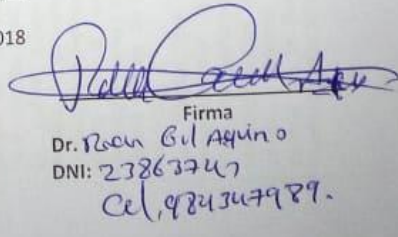 018
Firma
Dr. Gil Aquino
DNI: 23863747
Cel, 984347989.